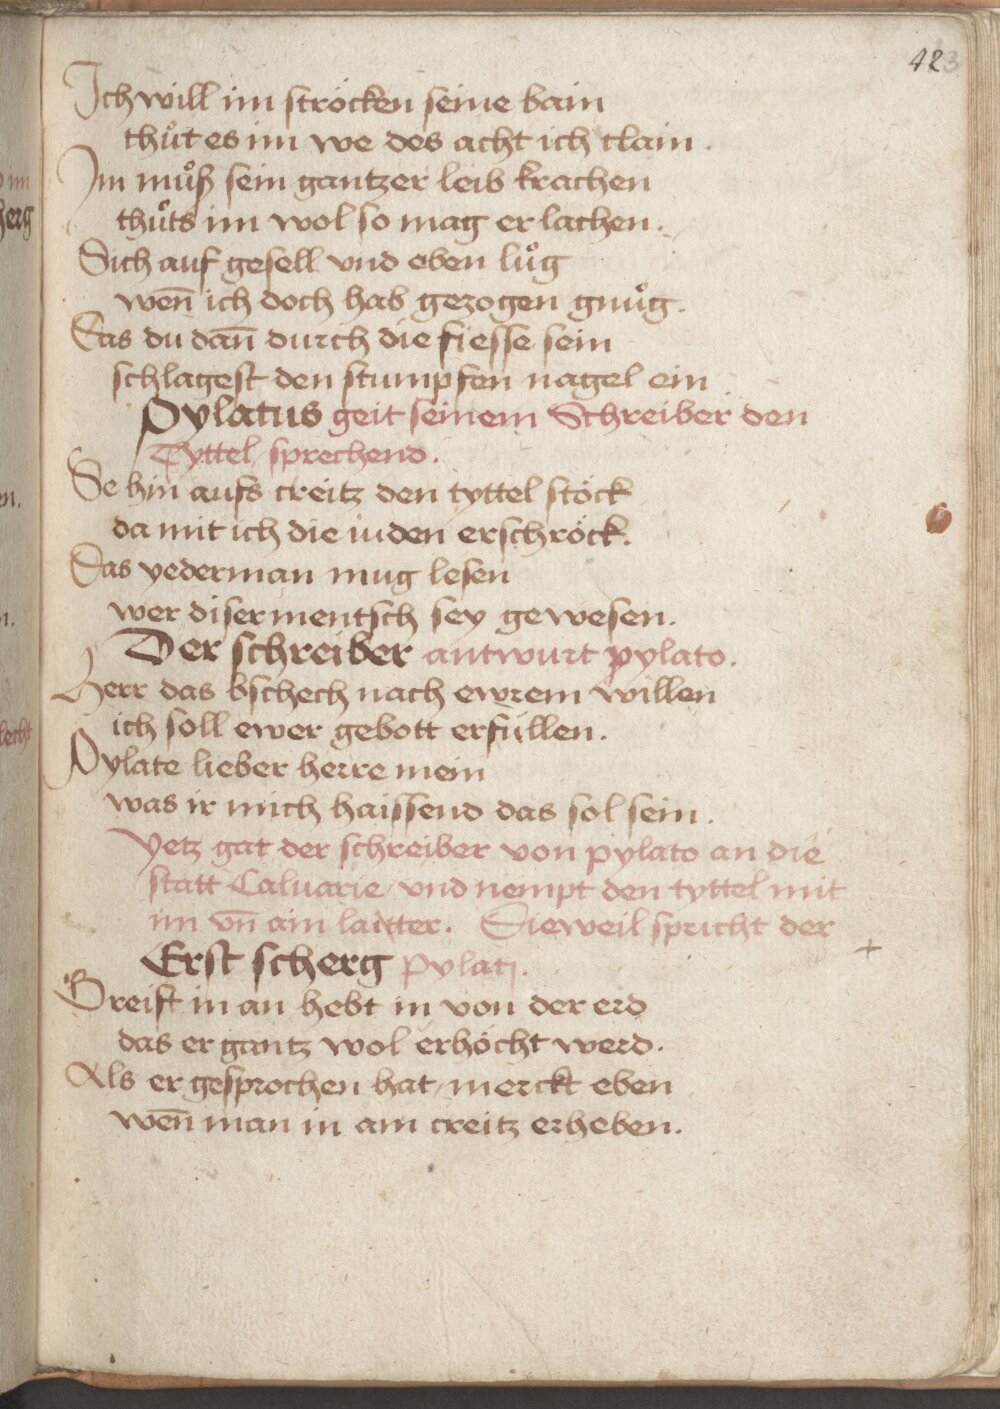 423
Ich will im ströcken seine bain
thůt es im we des acht ich clain.
Im můß sein gantzer leib krachen
thůts im wol so mag er lachen.
Sich auf gesell vnd eben lůg
wen̄ ich doch hab gezogen gnůg.
Das du dan̄ durch die fiesse sein
schlagest den stumpfen nagel ein
Pylatus geit seinem Schreiber den
Tyttel sprechend.
Se hin aufs creitz den tyttel stöck
da mit ich die iuden erschröck.
Das yederman mug lesen
wer diser mentsch sey gewesen.
Der schreiber antwurt pylato.
Herr das bschech nach ewrem willen
ich soll ewer gebott erfüllen.
Pylate lieber herre mein
was ir mich haissend das sol sein.
Yetz gat der schreiber von pylato an die
statt Caluarie vnd nempt den tyttel mit
im vn̄ ain laitter. Dieweil spricht der
Erst scherg Pylatj.
Greift in an hebt in von der erd
das er gantz wol erhöcht werd.
Als er gesprochen hat, merckt eben
wen̄ man in am creitz erheben.
im
herg
en.
n.
lecht